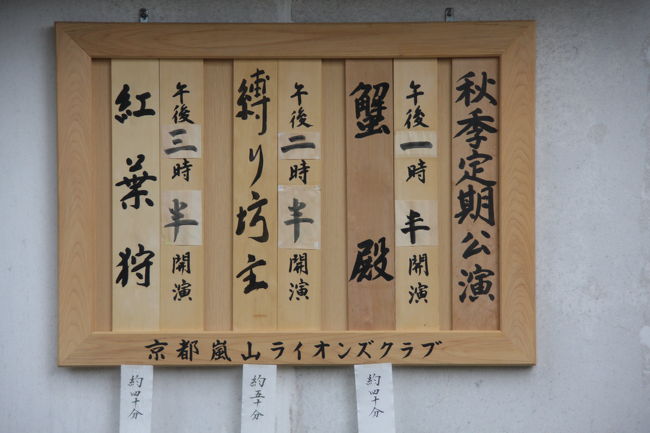 秋季定期公演
午後一時半開演
蟹殿
午後二時半開演
縛り坊主
午後三時半開演
紅葉狩
京都嵐山ライオンズクラブ
約四十分
約五十分
約四十分